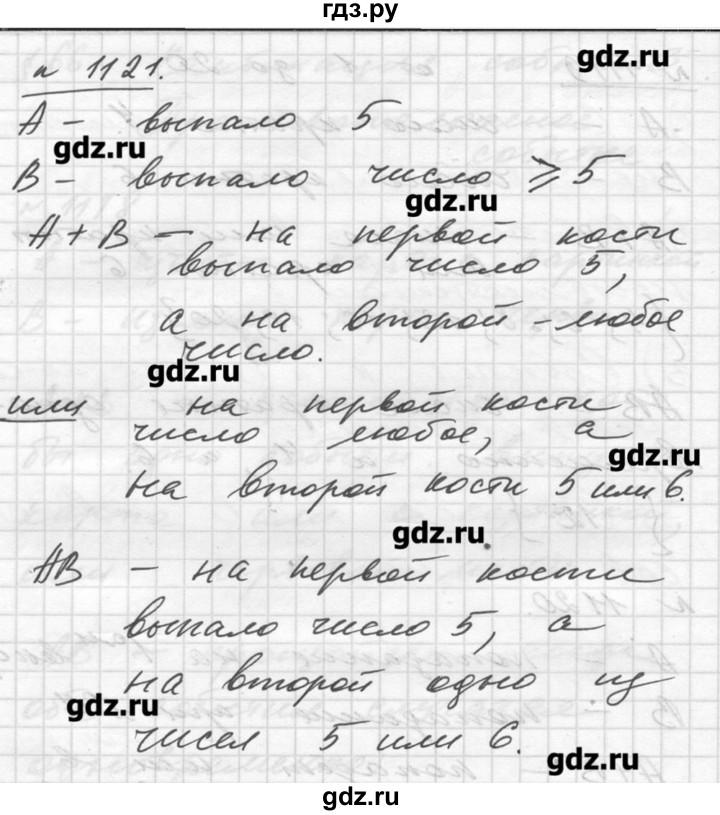 гдз.ру
gdz.ru
n 1121.
A - выпало 5
gdz.ru
B - выпало число ⩾ 5
gdz.ru
A + B - на первой кости
выпало число 5,
а на второй - любое
число.
gdz.ru
или на первой кости
число любое, а
gdz.ru
на второй кости 5 или 6.
gdz.ru
AB - на первой кости
выпало число 5, а
на второй одно из
gdz.ru
чисел 5 или 6.
gdz.ru
gdz.ru